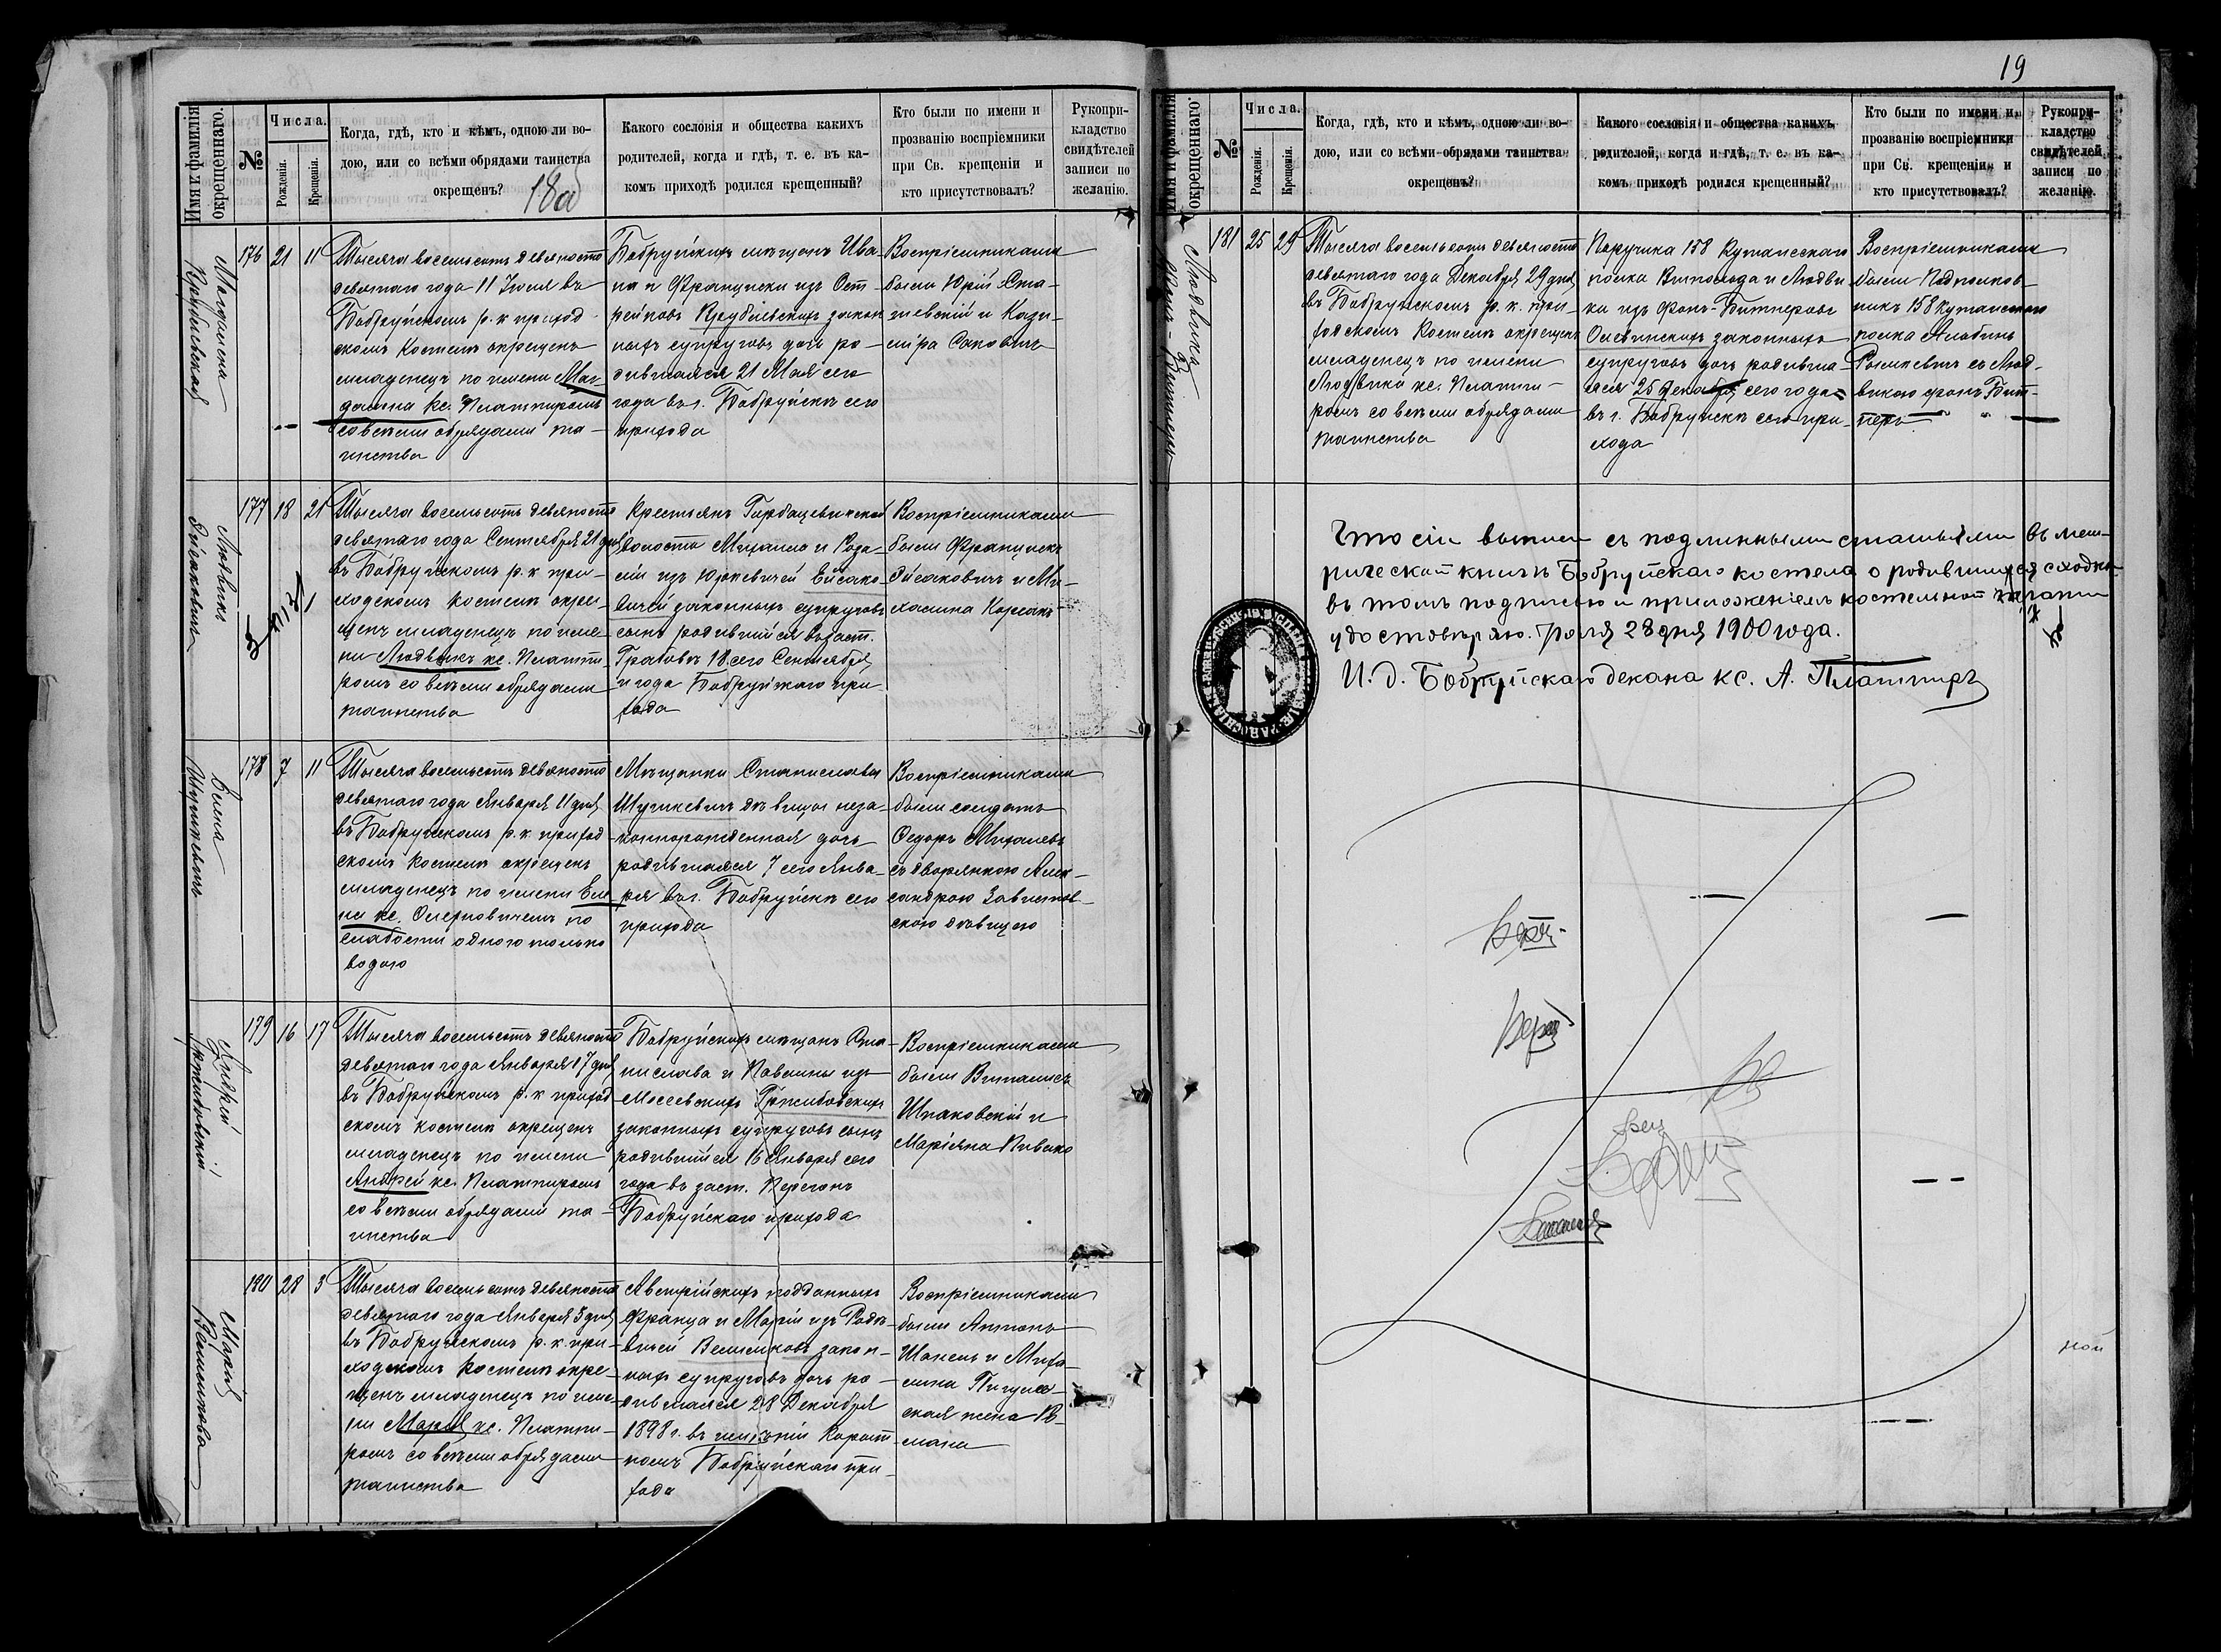 19
Имя и фамилия окрещеннаго.
№
Числа.
Рожденія.
Крещенія.
Когда, гдѣ, кто и кѣмъ, одною ли во-
дою, или со всѣми обрядами таинства
окрещенъ?
18об
Какого сословія и общества какихъ
родителей, когда и гдѣ, т. е. въ ка-
комъ приходѣ родился крещенный?
Кто были по имени и
прозванію воспріемники
при Св. крещеніи и
кто присутствовалъ?
Рукопри-
кладство
свидѣтелей
записи по
желанію.
Магдалена
176
21
11
Тысяча восемьсотъ девяносто
девятаго года 11 Іюля въ
Бобруйскомъ р. к приход
скомъ Костелѣ окрещенъ
младенецъ по имени Маг-
далина кс. Платпиромъ
со всѣми обрядами та-
инства
Бобруйскихъ мѣщанъ Ива-
на и Франциски изъ Ост-
рейковъ закон
ныхъ супруговъ дочь ро-
дившаяся 21 Мая сего
года въ г. Бобруйскѣ сего
прихода
Воспріемниками
были Юрій Ста-
шевскій и Кази-
міра Саковичъ
Людвикъ
Эйсаковичъ
177
18
21
Тысяча восемьсотъ девяносто
девятаго года Сентября 21 дня
въ Бобруйскомъ р. к при-
ходскомъ Костелѣ окре-
щенъ младенецъ по име-
ни Людвикъ кс. Платпи-
ромъ со всѣми обрядами
таинства
Крестьянъ Горбацевичской
волости Михаила и Роза-
ліи изъ Юркевичей Ейсако-
вичей законныхъ супруговъ
сынъ родившійся въ заст.
Грабовѣ 18 сего Сентября
и года Бобруйскаго при
хода
Воспріемниками
были Францискъ
Эйсаковичъ и Ми-
халина
Елена
Шушкевичъ
178
7
11
Тысяча восемьсотъ девяносто
девятаго года Января 11 дня
въ Бобруйскомъ р. к приход
скомъ Костелѣ окрещенъ
младенецъ по имени Еле
на кс. Олехновичемъ по
слабости одною только
водою
Мѣщанки Станиславы
Шушкевичъ дѣвицы неза-
коннорожденная дочь
родившаяся 7 сего Янва-
ря въ г. Бобруйскѣ сего
прихода
Воспріемниками
были солдатъ
Ѳедоръ Михалевъ
съ дворянкою Алек-
сандрою Завистов-
скою дѣвицею
Андрей
179
16
17
Тысяча восемьсотъ девяносто
девятаго года Января 17 дня
въ Бобруйскомъ р. к приход
скомъ Костелѣ окрещенъ
младенецъ по имени
Андрей кс. Платпиромъ
со всѣми обрядами та-
инства
Бобруйскихъ мѣщанъ Ста-
нислава и Павлины изъ
законныхъ супруговъ сынъ
родившійся 16 Января сего
года въ заст. Перегонъ
Бобруйскаго прихода
Воспріемниками
были Виталисъ
Шпаковскій и
Маріяна Пивако
Марія
Велисикова
180
28
3
Тысяча восемьсотъ девяносто
девятаго года Января 3 дня
въ Бобруйскомъ р. к. при-
ходскомъ Костелѣ окре-
щенъ младенецъ по име-
ни Марія кс. Платпи-
ромъ со всѣми обрядами
таинства
Австрійскихъ подданныхъ
Франца и Маріи изъ Радке-
вичей закон-
ныхъ супруговъ дочь ро-
дившаяся 28 Декабря
1898 г. въ имѣніи
Бобруйскаго при-
хода
Воспріемниками
были Антонъ
и Миха-
лина
ская жена
Имя и фамилия окрещеннаго.
№
Числа.
Рожденія.
Крещенія.
Когда, гдѣ, кто и кѣмъ, одною ли во-
дою, или со всѣми обрядами таинства
окрещенъ?
Какого сословія и общества какихъ
родителей, когда и гдѣ, т. е. въ ка-
комъ приходѣ родился крещенный?
Кто были по имени и
прозванію воспріемники
при Св. крещеніи и
кто присутствовалъ?
Рукопри-
кладство
свидѣтелей
записи по
желанію.
Людвика
181
25
29
Тысяча восемьсотъ девяносто
девятаго года Декабря 29 дня
въ Бобруйскомъ р. к. при-
ходскомъ Костелѣ окрещенъ
младенецъ по имени
Людвика кс. Платпи-
ромъ со всѣми обрядами
таинства
Поручика 158 Кутаисскаго
полка Витольда и Людви
ки изъ Фонъ-Битнеровъ
законныхъ
супруговъ дочь родивша-
яся 25 Декабря сего года
въ г. Бобруйскѣ сего при-
хода
Воспріемниками
были Подполков-
никъ 158 Кутаискаго
полка Альбинъ
съ Люд-
викою фонъ Бит-
неръ
Что сіи выписи съ подлинными статьями въ мет-
рической книгѣ Бобруйскаго костела о родившихся сходны
въ томъ подписью и приложеніемъ костельной печати
удостовѣряю. Іюля 28 дня 1900 года.
И. д. Бобруйскаго декана кс. А. Платпиръ